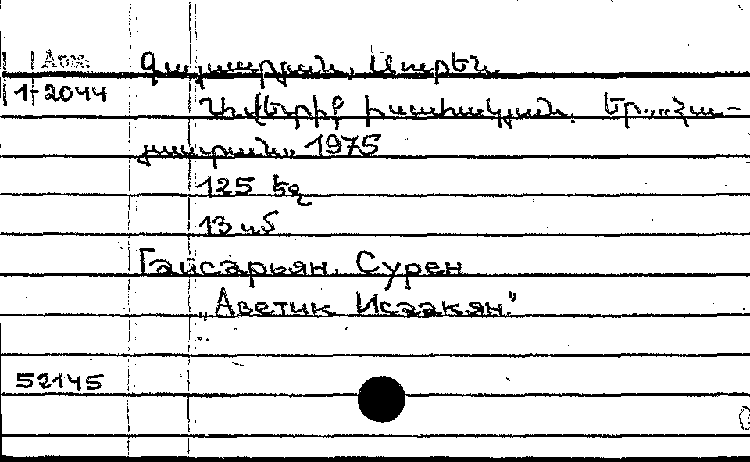 Арм.
Գայսարյան, Սուրեն
1-2044
Ավետիք Իսահակյան. Եր., „Հա-
յաստան„ 1975
125 էջ
13 սմ
Гайсарьян, Сурен
„Аветик Исаакян."
52145